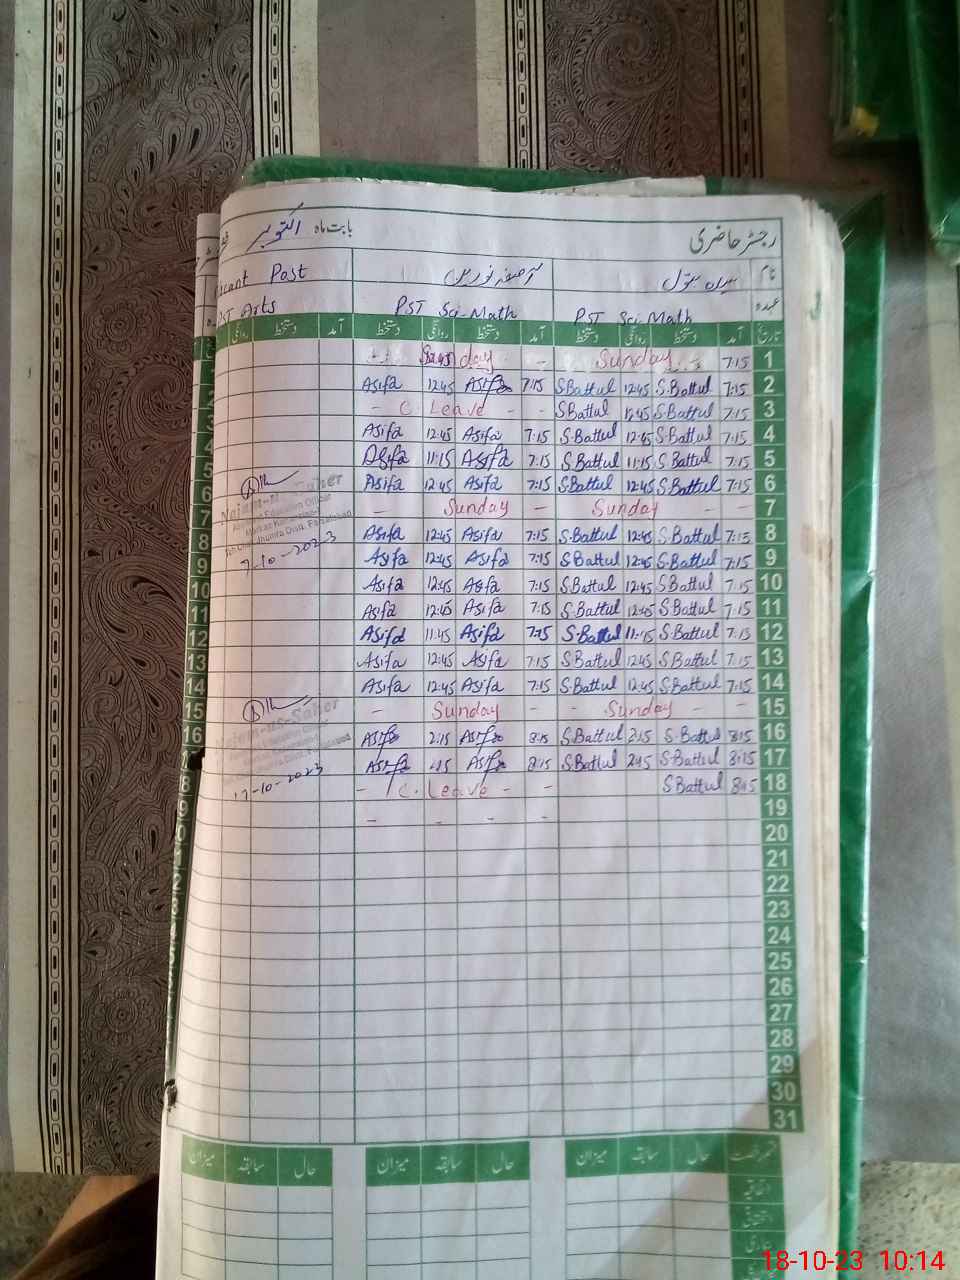 رجسٹر حاضری بابت ماہ اکتوبر
نام سیدہ بتول آصفہ نورین Post
عہدہ PST Sci-Math PST Sci-Math Arts
تاریخ آمد دستخط روانگی دستخط آمد دستخط روانگی دستخط آمد دستخط روانگی
1 7:15 Sunday - Sunday
2 7:15 S.Battul 12:45 S.Battul 7:15 Asifa 12:45 Asifa
3 7:15 S.Battul 12:45 S.Battul - - C. Leave -
4 7:15 S.Battul 12:45 S.Battul 7:15 Asifa 12:45 Asifa
5 7:15 S.Battul 11:15 S.Battul 7:15 Asifa 11:15 Asifa
6 7:15 S.Battul 12:45 S.Battul 7:15 Asifa 12:45 Asifa
7 - - Sunday - Sunday -
8 7:15 S.Battul 12:45 S.Battul 7:15 Asifa 12:45 Asifa
9 7:15 S.Battul 12:45 S.Battul 7:15 Asifa 12:45 Asifa 7-10-2023
10 7:15 S.Battul 12:45 S.Battul 7:15 Asifa 12:45 Asifa
11 7:15 S.Battul 12:45 S.Battul 7:15 Asifa 12:45 Asifa
12 7:15 S.Battul 11:45 S.Battul 7:15 Asifa 11:45 Asifa
13 7:15 S.Battul 12:45 S.Battul 7:15 Asifa 12:45 Asifa
14 7:15 S.Battul 12:45 S.Battul 7:15 Asifa 12:45 Asifa
15 - - Sunday - - Sunday -
16 8:15 S.Battul 2:15 S.Battul 8:15 Asifa 2:15 Asifa
17 8:15 S.Battul 2:45 S.Battul 8:15 Asifa Asifa
18 8:15 S.Battul - - C. Leave - 17-10-2023
19 - - - -
20
21
22
23
24
25
26
27
28
29
30
31
حال سابقہ میزان حال سابقہ میزان حال سابقہ میزان
اتفاقیہ
18-10-23 10:14